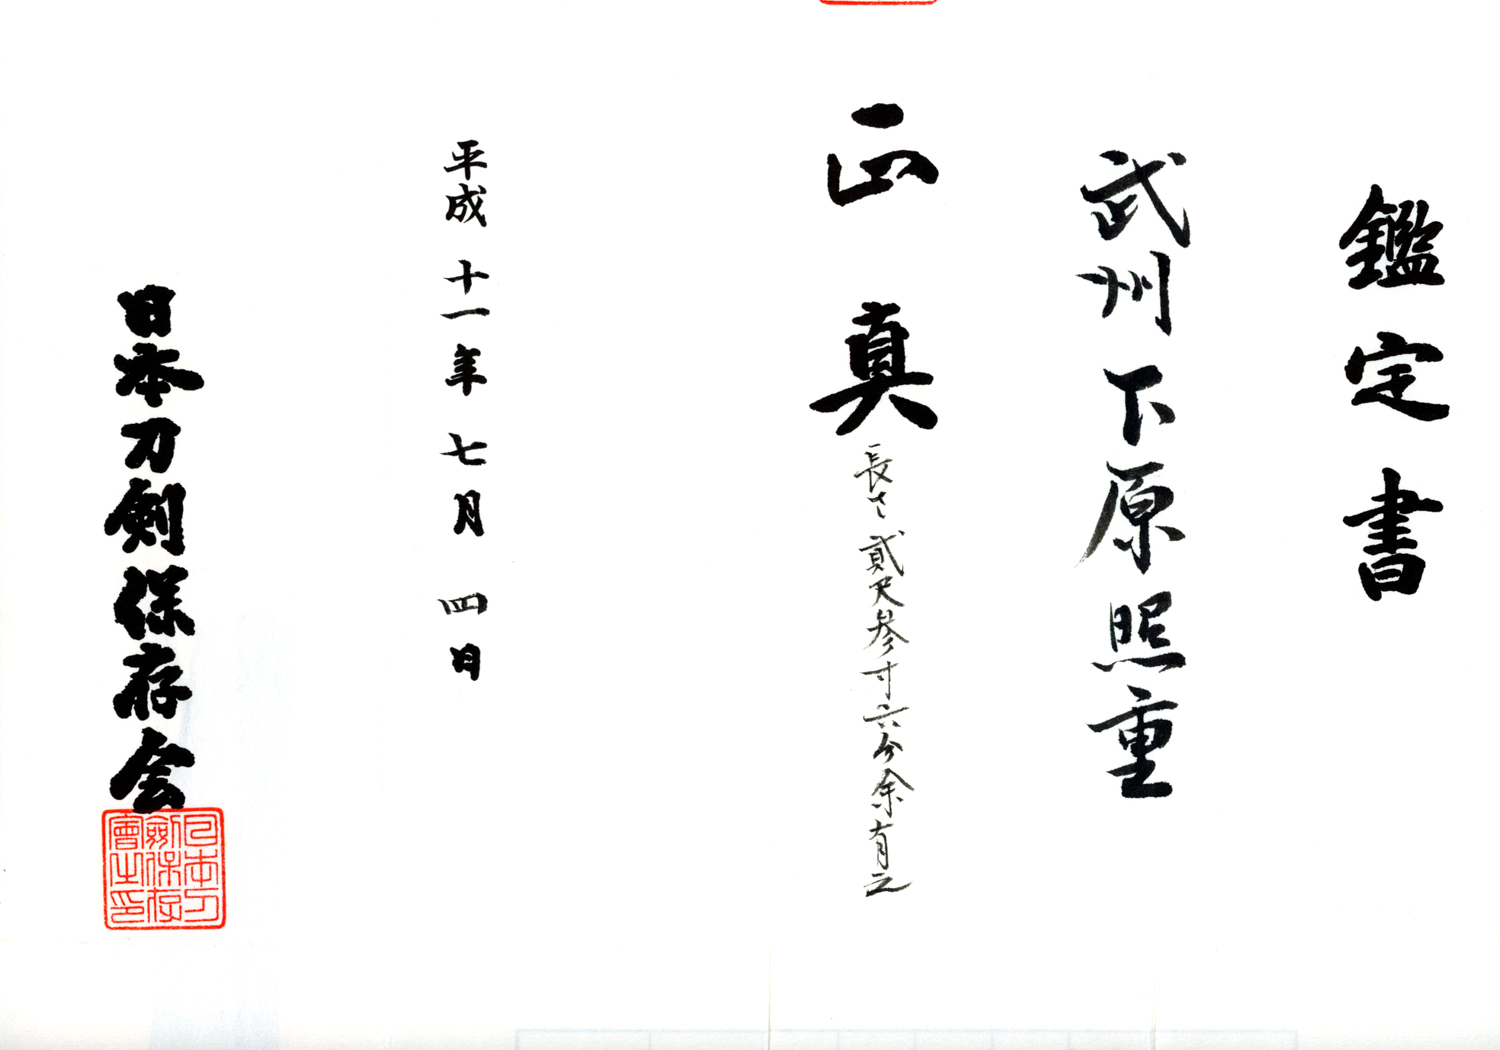 鑑定書
武州下原照重
正真
長さ貳尺参寸六分余有之
平成十一年七月四日
日本刀剣保存会
日本刀
劔保存
會之印